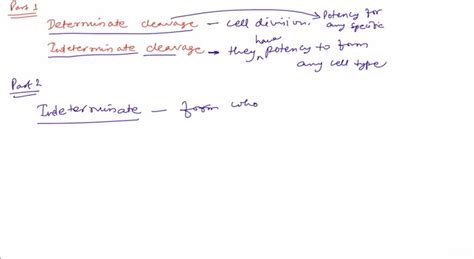 Part 1
Determinate cleavage — cell division. Potency for any specific
Indeterminate cleavage → they have potency to form any cell type
Part 2
Indeterminate — form who